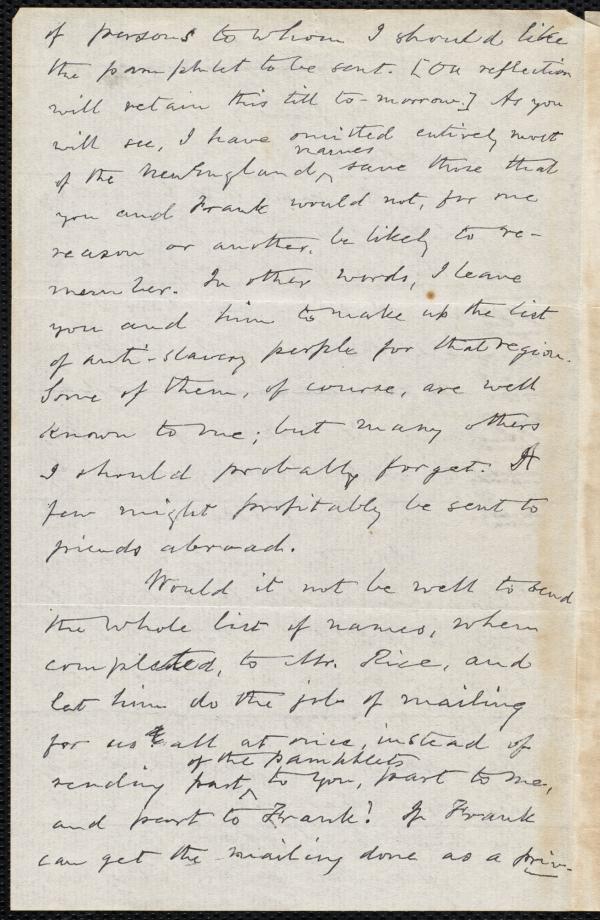 of persons to whom I should like
the pamphlet to be sent. [On reflection
will retain this till to-morrow.] As you
will see, I have omitted entirely most
of the New England names, save those that
you and Frank would not, for one
reason or another, be likely to re-
member. In other words, I leave
you and him to make up the list
of anti-slavery people for that region.
Some of them, of course, are well
known to me; but many others
I should probably forget. A
few might profitably be sent to
friends abroad.
Would it not be well to send
the whole list of names, when
completed, to Mr. Rice, and
let him do the job of mailing
for us all at once, instead of
sending part of the pamphlets to you, part to me,
and part to Frank? If Frank
can get the mailing done as a priv-